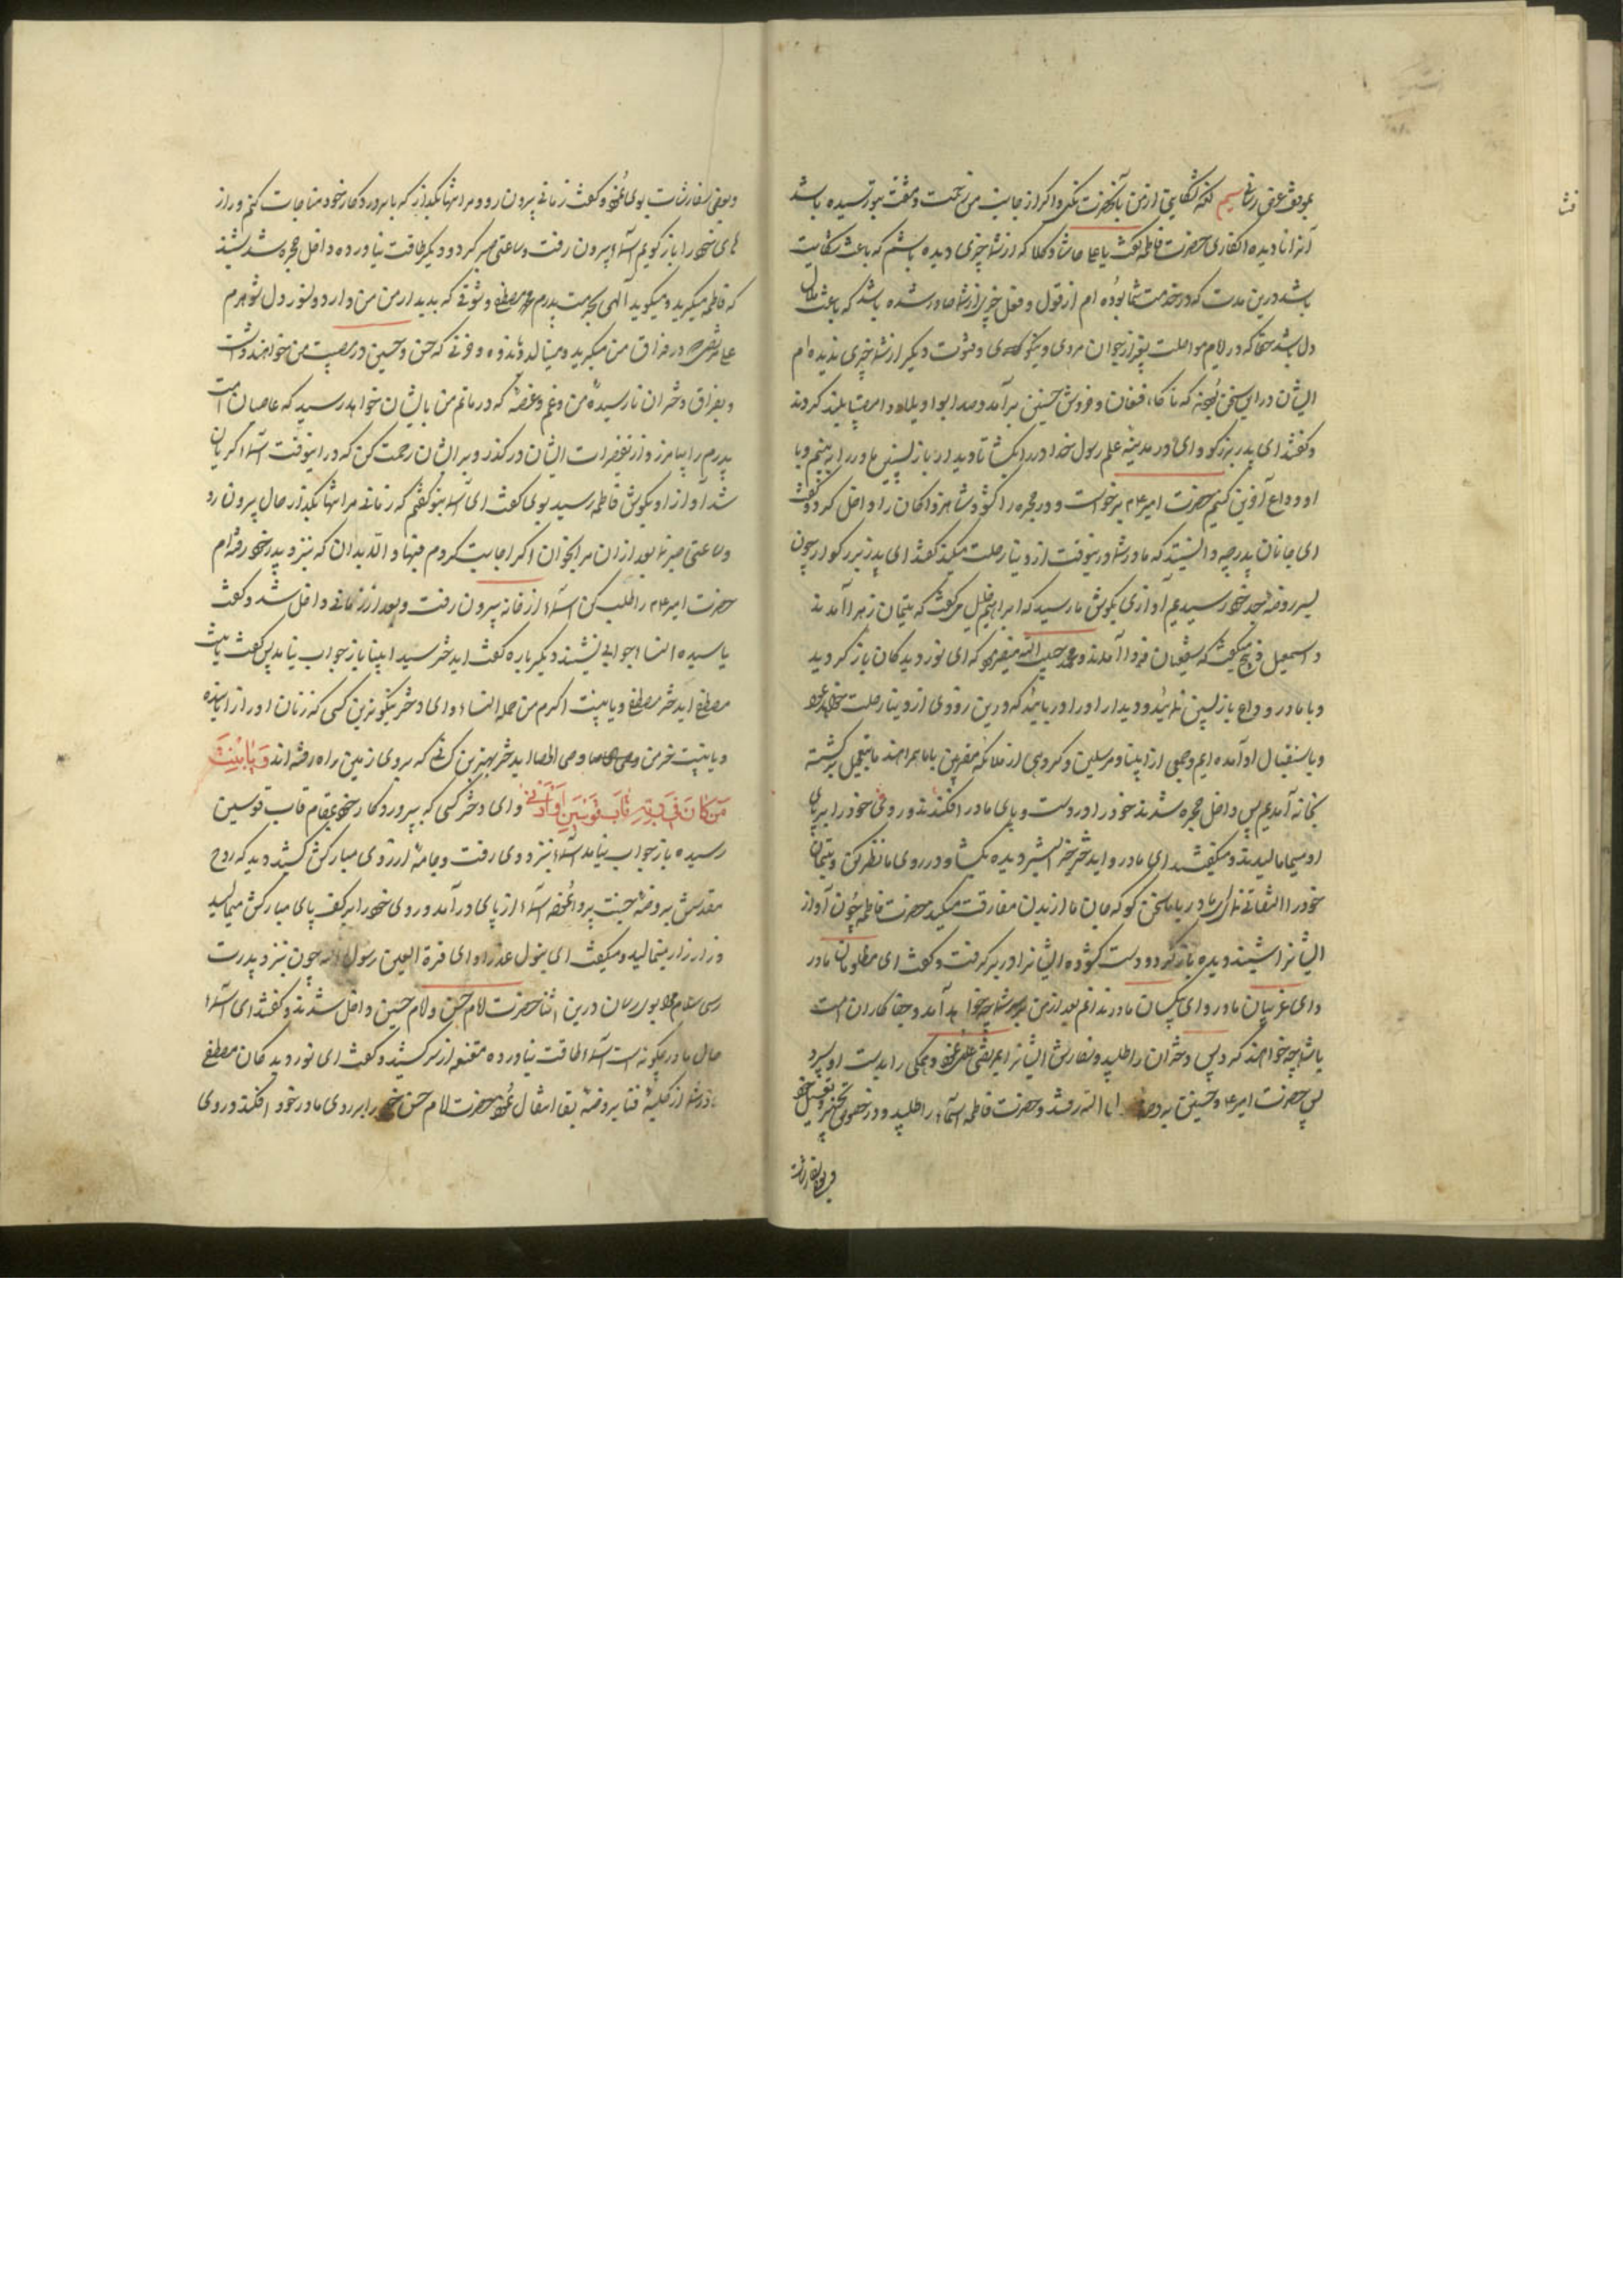 بموقف عرض رسانیم لکه شکایتی از من بآنحضرت نکنی و اگر از جانب من زحمت و مشقت بتو رسیده باشد
آنرا نادیده انکاری حضرت فاطمه گفت یا علی حاشا و کلا که از شما چیزی دیده باشم که باعث شکایت
باشد درین مدت که در خدمت شما بوده ام از قول و فعل خبر از شما صادر شده باشد که باعث ملال
دل باشد حقا که در ایام مواصلت بغیر از جوان مردی و نیکو و فتوت دیگر از شما چیزی ندیده ام
ایشان در این سخن که ناگاه فغان و خروش حسنین برآمد و صدا بوا ویلاه و امصیبتا بلند کردند
و گفتند ای پدر بزرگوار و ای در مدینه علم رسول خدا در را بکشا تا دیدار باز پسین مادر را ببینم و با
او وداع آخرین کنیم حضرت امیر برخواست و در حجره را کشود و شاهزادکان را داخل کرد و گفت
ای جانان پدر چه دانستید که مادر شما درینوقت از دنیا رحلت میکند گفتند ای پدر بزرگوار چون
بسر روضه جد خود رسیدیم آوازی بگوش ما رسید که ابراهیم خلیل میگفت که یتیمان زهرا آمدند
و اسمعیل ذبیح میگفت که شفیعان فردا آمدند و محمد حبیب الله میفرمود که ای نور دیدگان باز گردید
و با مادر وداع بازپسین نمائید و دیدار او را دریابید که درین روزی از دنیا رحلت خواهد نمود
و باستقبال او آمده ایم و جمعی از انبیا و مرسلین و گروهی از ملائکه مقربین با ما همراهند ما بتعجیل برگشته
بخانه آمدیم پس داخل حجره شدند خود را در دست و پای مادر افکندند و روی خود را بر پای
او میمالیدند و میگفتند ای مادر و ای دختر خیر البشر دیده بکشا و در روی ما نظر کن و یتیمان
خود را التفاتی نما ای مادر با ما سخن گو که جان ما از بدن مفارقت میکند حضرت فاطمه چون آواز
ایشانرا شنید دیده باز کرد و دست کشوده ایشانرا در بر گرفت و گفت ای مظلومان مادر
و ای غریبان مادر و ای بیکسان مادر ندانم بعد از من بر سر شما چه خواهد آمد و جفاکاران امت
با شما چه خواهند کرد پس دختران را طلبید و سفارش ایشانرا بمرتضی علی نموده و همگی را بدست او سپرد
پس حضرت امیر با حسنین بروضه رفتند و حضرت فاطمه اسما را طلبید و در خصوص تجهیز و تغسیل خود
و بعضی سفارشات
و بعضی سفارشات بوی نمود و گفت زمانی بیرون رو و مرا تنها بگذار که با پروردگار خود مناجات کنم و راز
های خود را باز گویم اسما بیرون رفت و ساعتی صبر کرد و دیگر طاقت نیاورده داخل حجره شد شنید
که فاطمه میگرید و میگوید الهی بحرمت پدرم محمد مصطفی و شوقی که بدیدار من دارد و بسوز دل شوهرم
علی مرتضی در فراق من میگرید و مینالد و حزنی که حسن و حسین در مصیبت من خواهند داشت
و بفراق دختران نارسیده من و غم و غصه که در ماتم من بایشان خواهد رسید که عاصیان امت
پدرم را بیامرز و از تقصیرات ایشان در گذر و بر ایشان رحمت کن که در اینوقت اسما گریان
شد آواز او بگوش فاطمه رسید بوی گفت ای اسما بتو گفتم که زمانی مرا تنها بگذار حال بیرون رو
و ساعتی صبر نما بعد از آن مرا بخوان اگر اجابت کردم فبها و الا بدان که بنزد پدر خود رفته ام
حضرت امیر را طلب کن اسما از خانه بیرون رفت و بعد از زمانی داخل شد و گفت
یا سیدة النسا جوابی نشنید دیگر باره گفت ای دختر سید انبیا باز جواب نیامد پس گفت یا بنت
مصطفی ای دختر مصطفی و یا بنت اکرم من حمله النساء و ای دختر نیکوترین کسی که زنان او را زائیده
و یا بنت خیر من وطی الحصا ای دختر بهترین کسانی که بروی زمین راه رفته اند وَ یا بِنْتَ
مَن کانَ مِن رَبِّهِ قابَ قَوْسَیْنِ اَوْ اَدْنی و ای دختر کسی که بپروردگار خود بمقام قاب قوسین
رسیده باز جواب نیامد اسما بنزد وی رفت و جامه از روی مبارکش کشید دید که روح
مقدسش بروضه جنت پرواز نموده اسما از پای درآمد و روی خود را بر کف پای مبارکش میمالید
و زار زار مینالید و میگفت ای بتول عذرا و ای قرة العین رسول الله چون بنزد پدرت
رسی سلام مرا بوی برسان درین اثنا حضرت امام حسن و امام حسین داخل شدند و گفتند ای اسما
حال مادر چگونه است اسما طاقت نیاورده مقنعه از سر کشید و گفت ای نور دیدگان مصطفی
مادر شما از کلبه فنا بروضه بقا انتقال نمود حضرت امام حسن خود را بر روی مادر خود افکند و روی